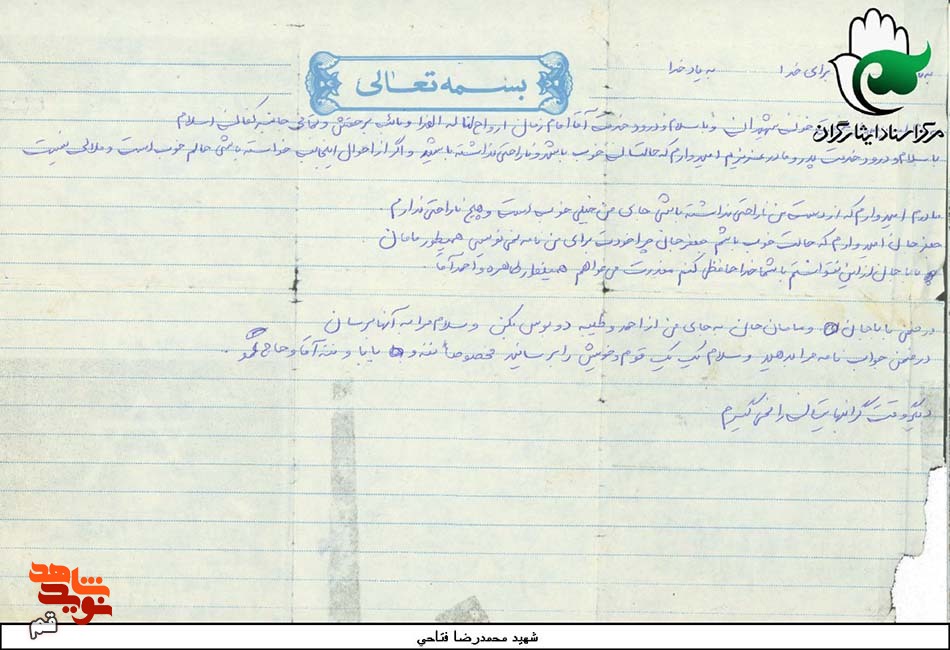 برای خدا به یاد خدا
بسمه تعالی
مرکز اسناد ایثارگران
خون شهیدان و با سلام و درود حضرت آقا امام زمان ارواحنا له الفدا و نائب بر حقش اسلام
با سلام و درود خدمت پدر و مادر عزیزم امیدوارم که حالتان خوب باشد و ناراحتی نداشته باشید و اگر از احوال اینجانب خواسته باشی حالم خوب است و ملالی نیست
مادرم امیدوارم که از دست من ناراحتی نداشته باشی جای من خیلی خوب است و هیچ ناراحتی ندارم.
جعفر جان امیدوارم که حالت خوب باشد جعفر جان چرا خودت برای من نامه نمی نویسی همینطور مامان
بابا جان از این نتوانستم با شما خداحافظی کنم معذرت می خواهم همینطور طاهره و احمد آقا.
در ضمن بابا جان و مامان جان به جای من از احمد و طیبه دو بوس بکن و سلام مرا به آنها برسان
در ضمن جواب نامه مرا بدهید و سلام تک تک قوم و خویش را برسانید مخصوصاً ننه و بابا و ننه آقا و حاج
دیگر وقت گرانبهایتان را نمی گیرم
نوید شاهد
قم
شهید محمدرضا فتاحی